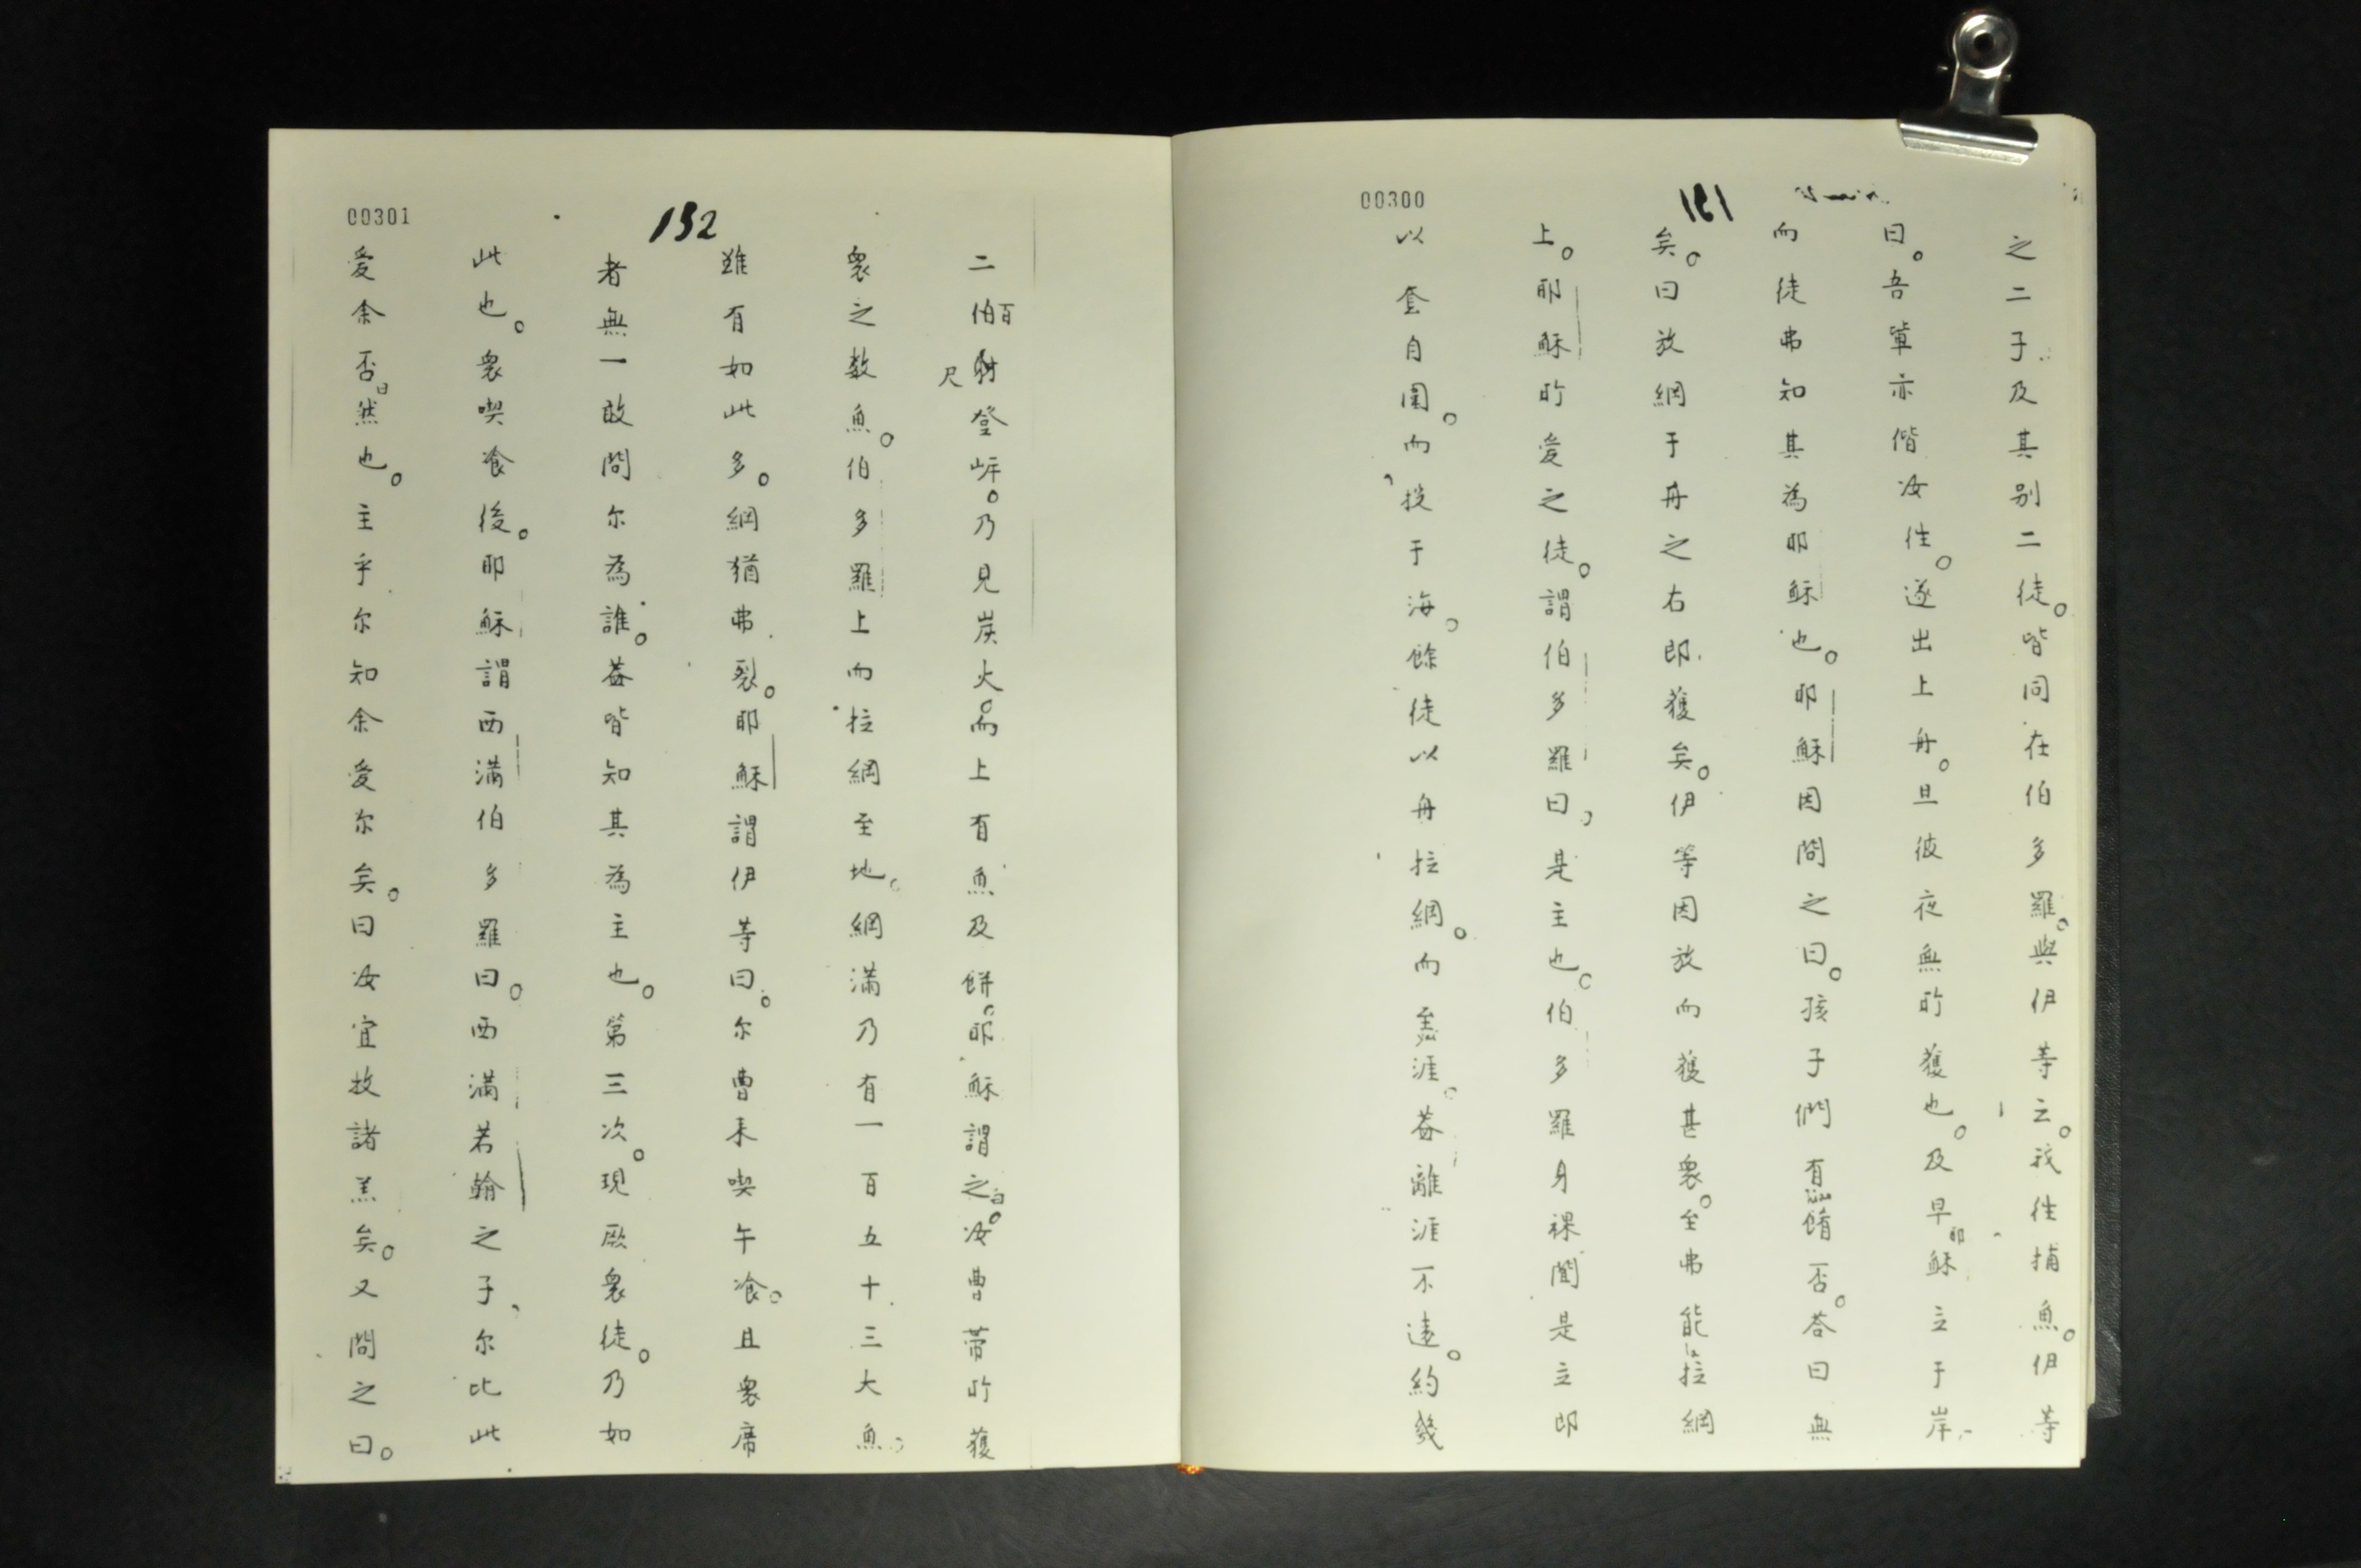 00300
151
之二子及其别二徒。皆同在伯多羅。與伊等云。我徃捕魚。伊等
曰。吾軰亦偕汝徃。遂出上舟。旦彼夜無所獲也。及早耶穌立于岸
而徒弗知其為耶穌也。耶穌因問之曰。孩子們有餚否。荅曰無
矣。曰放網于舟之右即獲矣。伊等因放而獲甚衆。至弗能拉網
上。耶穌所愛之徒。謂伯多羅曰。是主也。伯多羅身裸聞是立即
以套自圍。而投于海。餘徒以舟拉網。而至涯。葢離涯不遠。約幾
00301
152
二伯百尺登岸。乃見炭火。而上有魚及餅。耶穌謂之曰。汝曹帶所獲
衆之数魚。伯多羅上而拉網至地。網滿乃有一百五十三大魚。
雖有如此多。網猶弗裂。耶穌謂伊等曰。尔曹来喫午飡。且衆席
者無一敢問尔為誰。葢皆知其為主也。第三次。現厥衆徒。乃如
此也。衆喫飡後。耶穌謂西滿伯多羅曰。西滿若翰之子、尔比此
愛余否曰然也。主乎尔知余愛尔矣。曰汝宜牧諸羔矣。又問之曰。